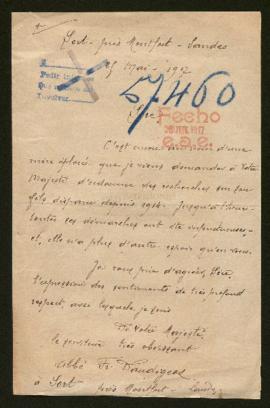 Sort - près Montfort - Landes
25 Mai - 1917
57,460
Sire,
Fecho
e.a.e.
C'est encore au nom d'une
mère éplorée que je viens demander à Votre
Majesté d'ordonner des recherches sur son
fils disparu depuis 1914. Jusqu'à l'heure
toutes les démarches ont été infructueuses
et, elle n'a plus d'autre espoir qu'en vous.
Je vous prie d'agréer, Sire,
l'expression des sentiments de très profond
respect avec lesquels je suis
De Votre Majesté,
le serviteur très obéissant
abbé
à Sort près Montfort - Landes